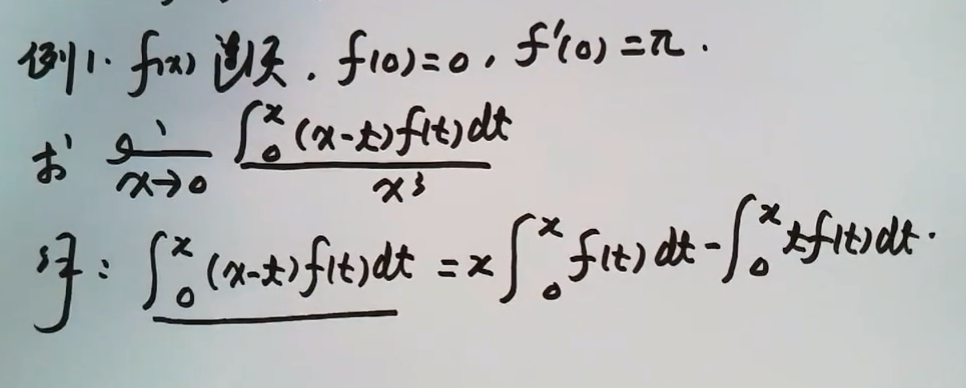 例1. f(x) 连续. f(0)=0, f'(0)=π.
求 lim x→0 ∫₀ˣ(x-t)f(t)dt / x³
解: ∫₀ˣ(x-t)f(t)dt = x∫₀ˣf(t)dt - ∫₀ˣtf(t)dt.